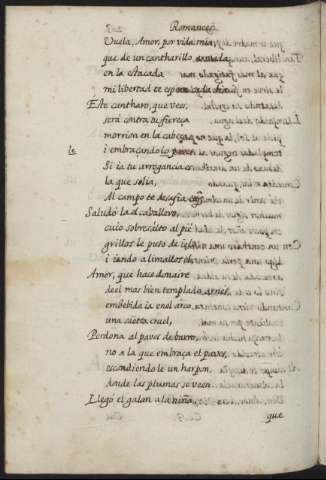 Romances.
Vuela, Amor, por vida mia,
que de un cantharillo armada
en la estacada
mi libertad te espera cada dia.
Este cantharo, que ves,
será contra tu fiereça
morrion en la cabeça,
i embraçandolo
Si ia tu arrogancia es
la que solia,
Al campo te desafia
Saludó la el caballero,
cuio sobresalto al pie
grillos le puso de ielo,
i iendo a limallos el
Amor, que hace donaire
de el mas bien templado arnes,
embebida ia en el arco
una saeta cruel,
Perdona al paves de barro,
no a la que embraça el paves,
escondiendo le un harpon
donde las plumas se veen.
Llegó el galan a la niña,
que